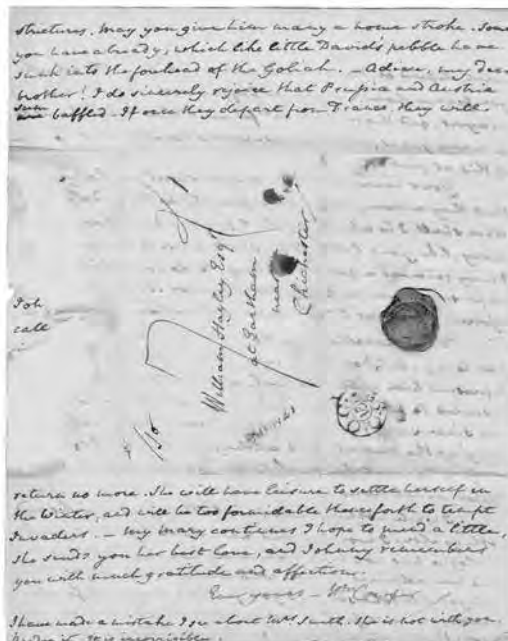 strictures. May you give him many a home stroke. Some
you have already, which like little Davids pebble have
sunk into the forehead of the Goliah. _ Adieu, my dear
brother! I do sincerely rejoice that Prussia and Austria
seem baffled. If once they depart from France they will
Joh
call
William Hayley Esqr
at Eartham
near
Chichester
return no more. She will have leisure to settle herself in
the Winter, and will be too formidable thenceforth to tempt
Invaders. _ My Mary continues I hope to mend a little,
she sends you her best love, and Johnny remembers
you with much gratitude and affection.
Ever yours _ Wm Cowper
I have made a mistake I see about Mrs Smith. She is not with you.